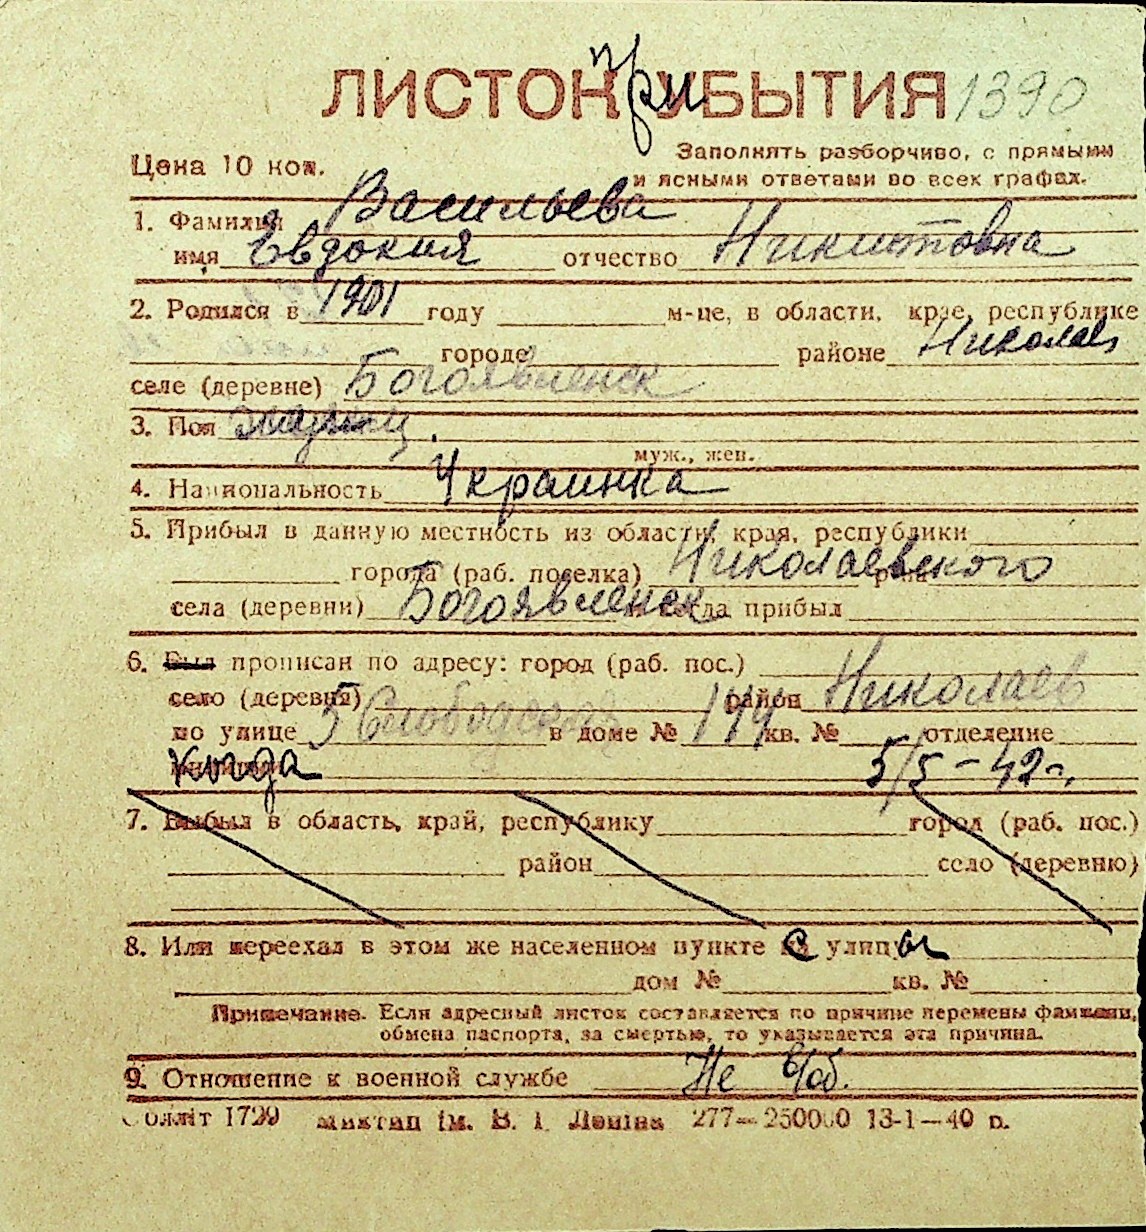 ЛИСТОК при УБЫТИЯ 1390
Цена 10 коп.
Заполнять разборчиво, с прямыми
и ясными ответами во всех графах.
1. Фамилия Васильева
имя Евдокия отчество Никитовна
2. Родился в 1901 году м-це, в области, крае, республике
городе районе Николаев
селе (деревне) Богоявленск
3. Пол
муж., жен.
4. Национальность Украинка
5. Прибыл в данную местность из области, края, республики
города (раб. поселка) Николаевского р-на
села (деревни) Богоявленск когда прибыл
6. Был прописан по адресу: город (раб. пос.)
село (деревня) район Николаев
по улице 5 Слободская в доме № 144 кв. № отделение
милиции Когда 5/5-42 г.
7. Выбыл в область, край, республику город (раб. пос.)
район село (деревню)
8. Или переехал в этом же населенном пункте с улицы
дом № кв. №
Примечание. Если адресный листок составляется по причине перемены фамилии,
обмена паспорта, за смертью, то указывается эта причина.
9. Отношение к военной службе Не в/об.
Облліт 1729 ім. В. І. Леніна 277—250000 13-1—40 р.